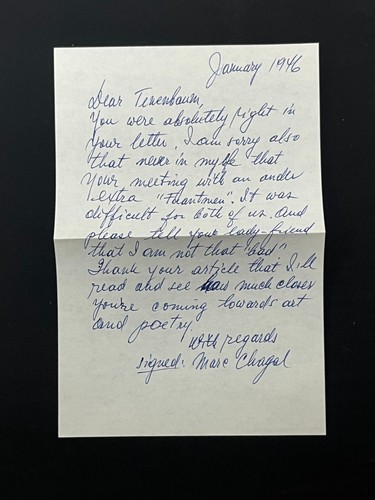 January 1946
Dear Tenenbaum,
You were absolutely right in
your letter. I am sorry also
that never in my life that
your meeting with an under
extra "Fdantmen". It was
difficult for both of us. And
please tell your lady-friend
that I am not that "bad".
Thank your article that I'll
read and see how much closer
you're coming towards art
and poetry.
With regards
signed: Marc Chagal